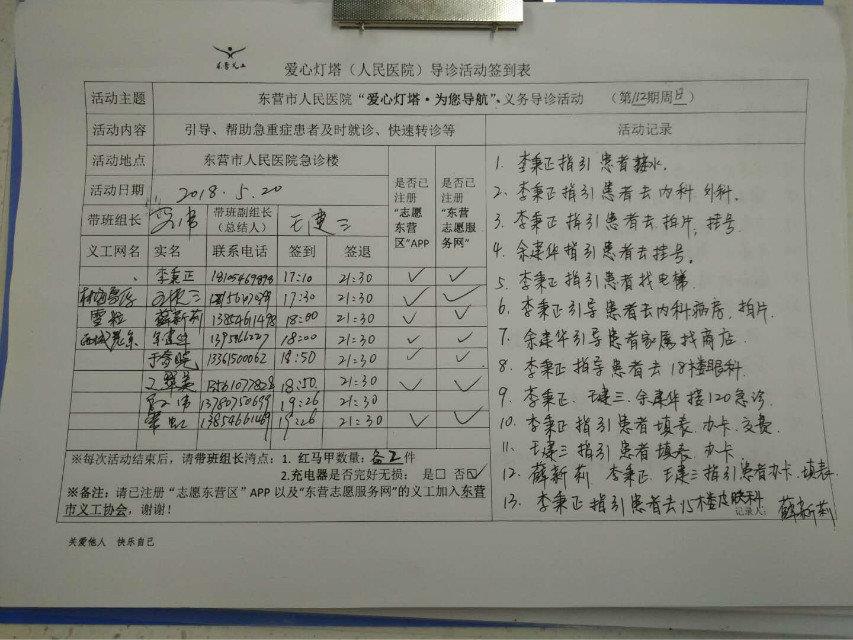 东营义工
爱心灯塔（人民医院）导诊活动签到表
活动主题 东营市人民医院“爱心灯塔·为您导航”、义务导诊活动 （第112期周日）
活动内容 引导、帮助急重症患者及时就诊、快速转诊等 活动记录
活动地点 东营市人民医院急诊楼
活动日期 2018.5.20
带班组长 带班副组长（总结人） 王建三
是否已注册“志愿东营区”APP
是否已注册“东营志愿服务网”
义工网名 实名 联系电话 签到 签退
李秉正 17:10 21:30 ✓ ✓
王建三 17:30 21:30 ✓ ✓
雪粒 薛新莉 13854611498 18:00 21:30 ✓ ✓
余建华 18:00 21:30 ✓ ✓
13361500062 18:50 21:30 ✓ ✓
18:50 21:30 ✓ ✓
13780750699 19:26 21:30
19:26 21:30 ✓ ✓
※每次活动结束后，请带班组长清点：1. 红马甲数量： 件
2.充电器是否完好无损： 是□ 否☑
※备注：请已注册“志愿东营区”APP 以及“东营志愿服务网”的义工加入东营
市义工协会，谢谢！
1. 李秉正指引患者接水.
2. 李秉正指引患者去内科 外科.
3. 李秉正指引患者去拍片, 挂号.
4. 余建华指引患者去挂号.
5. 李秉正指引患者找电梯.
6. 李秉正引导患者去内科病房. 拍片.
7. 余建华引导患者家属找商店.
8. 李秉正指导患者去18楼眼科.
9. 李秉正. 王建三. 余建华接120急诊.
10. 李秉正指引患者填表. 办卡. 交费.
11. 王建三指引患者填表. 办卡
12. 薛新莉 李秉正. 王建三指引患者办卡. 填表.
13. 李秉正指引患者去15楼皮肤科
记录人： 薛新莉
关爱他人 快乐自己